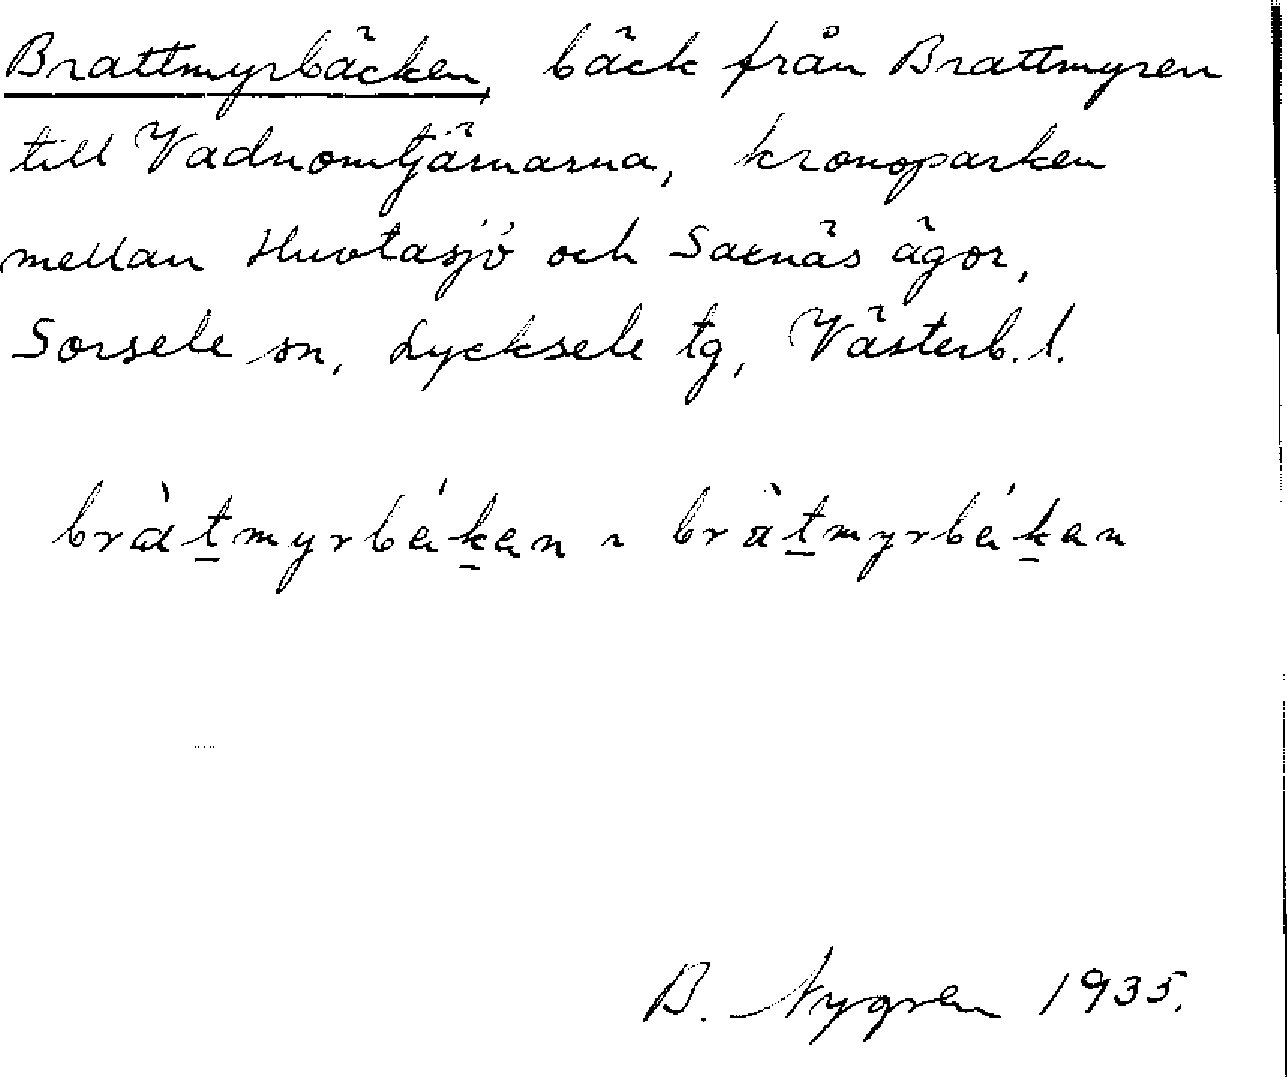 Brattmyrbäcken, bäck från Brattmyren
till Vadnomtjärnarna, kronoparken
mellan Huvtasjö och Saxnäs ägor,
Sorsele sn, Lycksele tg, Västerb. l.
bràt̲myrbák̲an ~ bràt̲myrbák̲an
B. Nygren 1935.